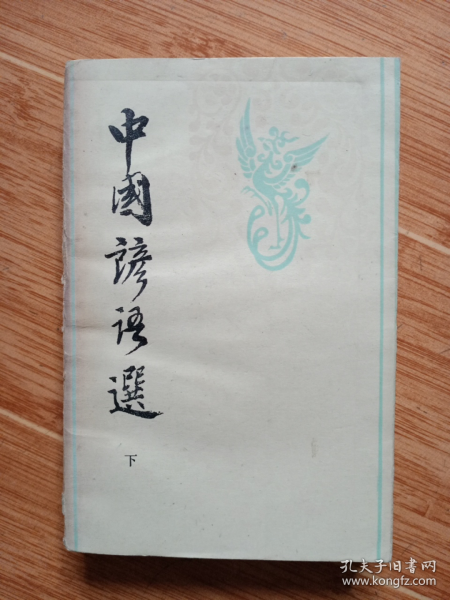 中國諺语選
下
孔夫子旧书网
www.kongfz.com